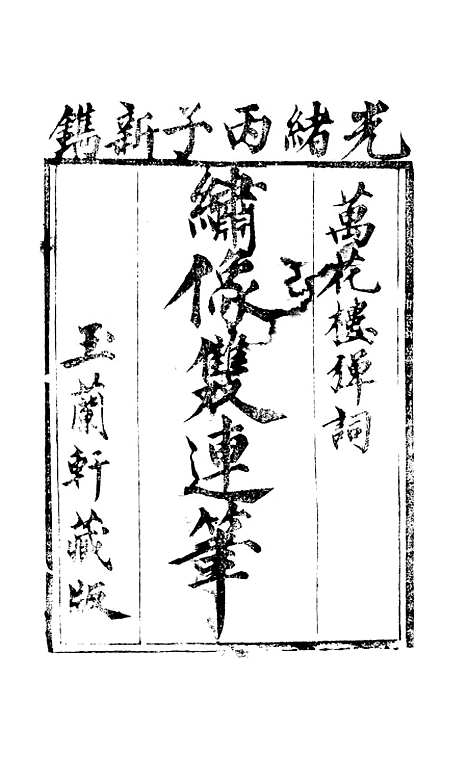 光緒丙子新鐫
萬花樓彈詞
繡像雙連筆
玉蘭軒藏版